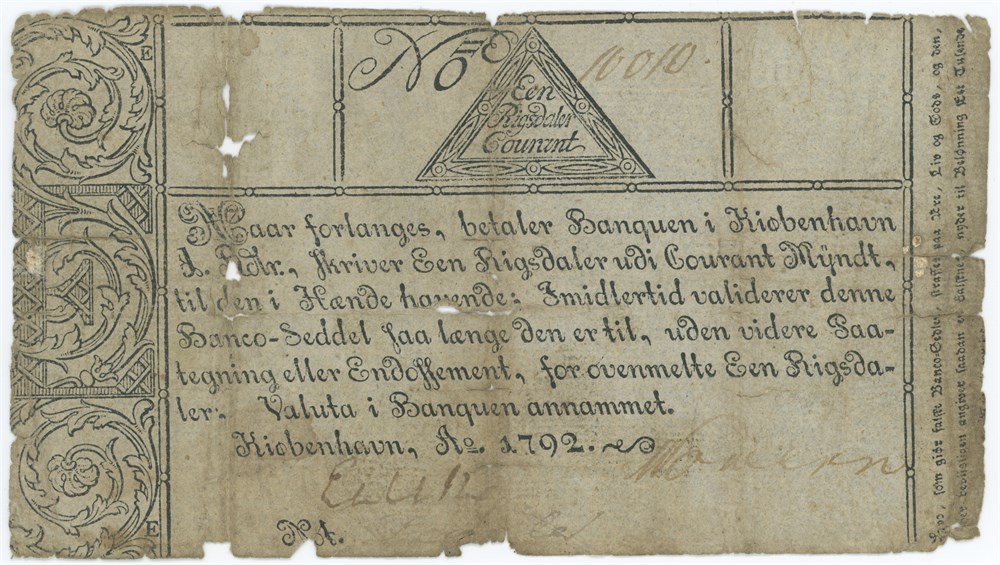 No 10010.
Een
Rigsdaler
Courant
Naar forlanges, betaler Banquen i Kiøbenhavn
1. Rdlr., skriver Een Rigsdaler udi Courant Mÿndt,
til den i Hænde havende; Imidlertid validerer denne
Banco-Seddel saa længe den er til, uden videre Paa-
tegning eller Endossement, for ovenmelte Een Rigsda-
ler. Valuta i Banquen annammet.
Kiøbenhavn, Ao. 1792.
No 1.
E
E
som giør falske Banco-Sedler, straffes paa Ære, Liv og Gods, og den,
angiver saadan en nyder til Belønning Eet Tusende